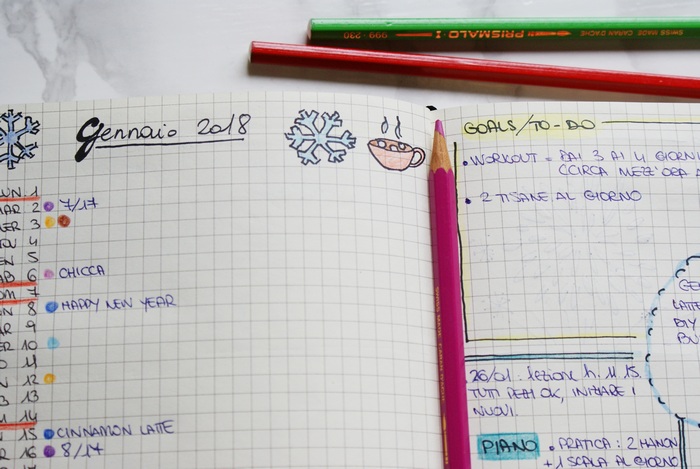 SWISS MADE CARAN D'ACHE PRISMALO I 999.230
Gennaio 2018
UN. 1
MAR 2 7/17
ER 3
4
EN 5
AB 6 CHICCA
OM 7
UN 8 HAPPY NEW YEAR
AR 9
ER 10
11
N 12
B 13
14
N 15 CINNAMON LATTE
AR 16 8/17
GOALS/TO-DO
• WORKOUT = DAI 3 AI 4 GIORNI
CIRCA MEZZ'ORA A
• 2 TISANE AL GIORNO
GE
LATTE
DIY
BU
26/01: lezione h. 11.15.
TUTTI PEZZI OK, INIZIARE I
NUOVI.
PIANO • PRATICA: 2 HANON
+ 1 SCALA AL GIORNO